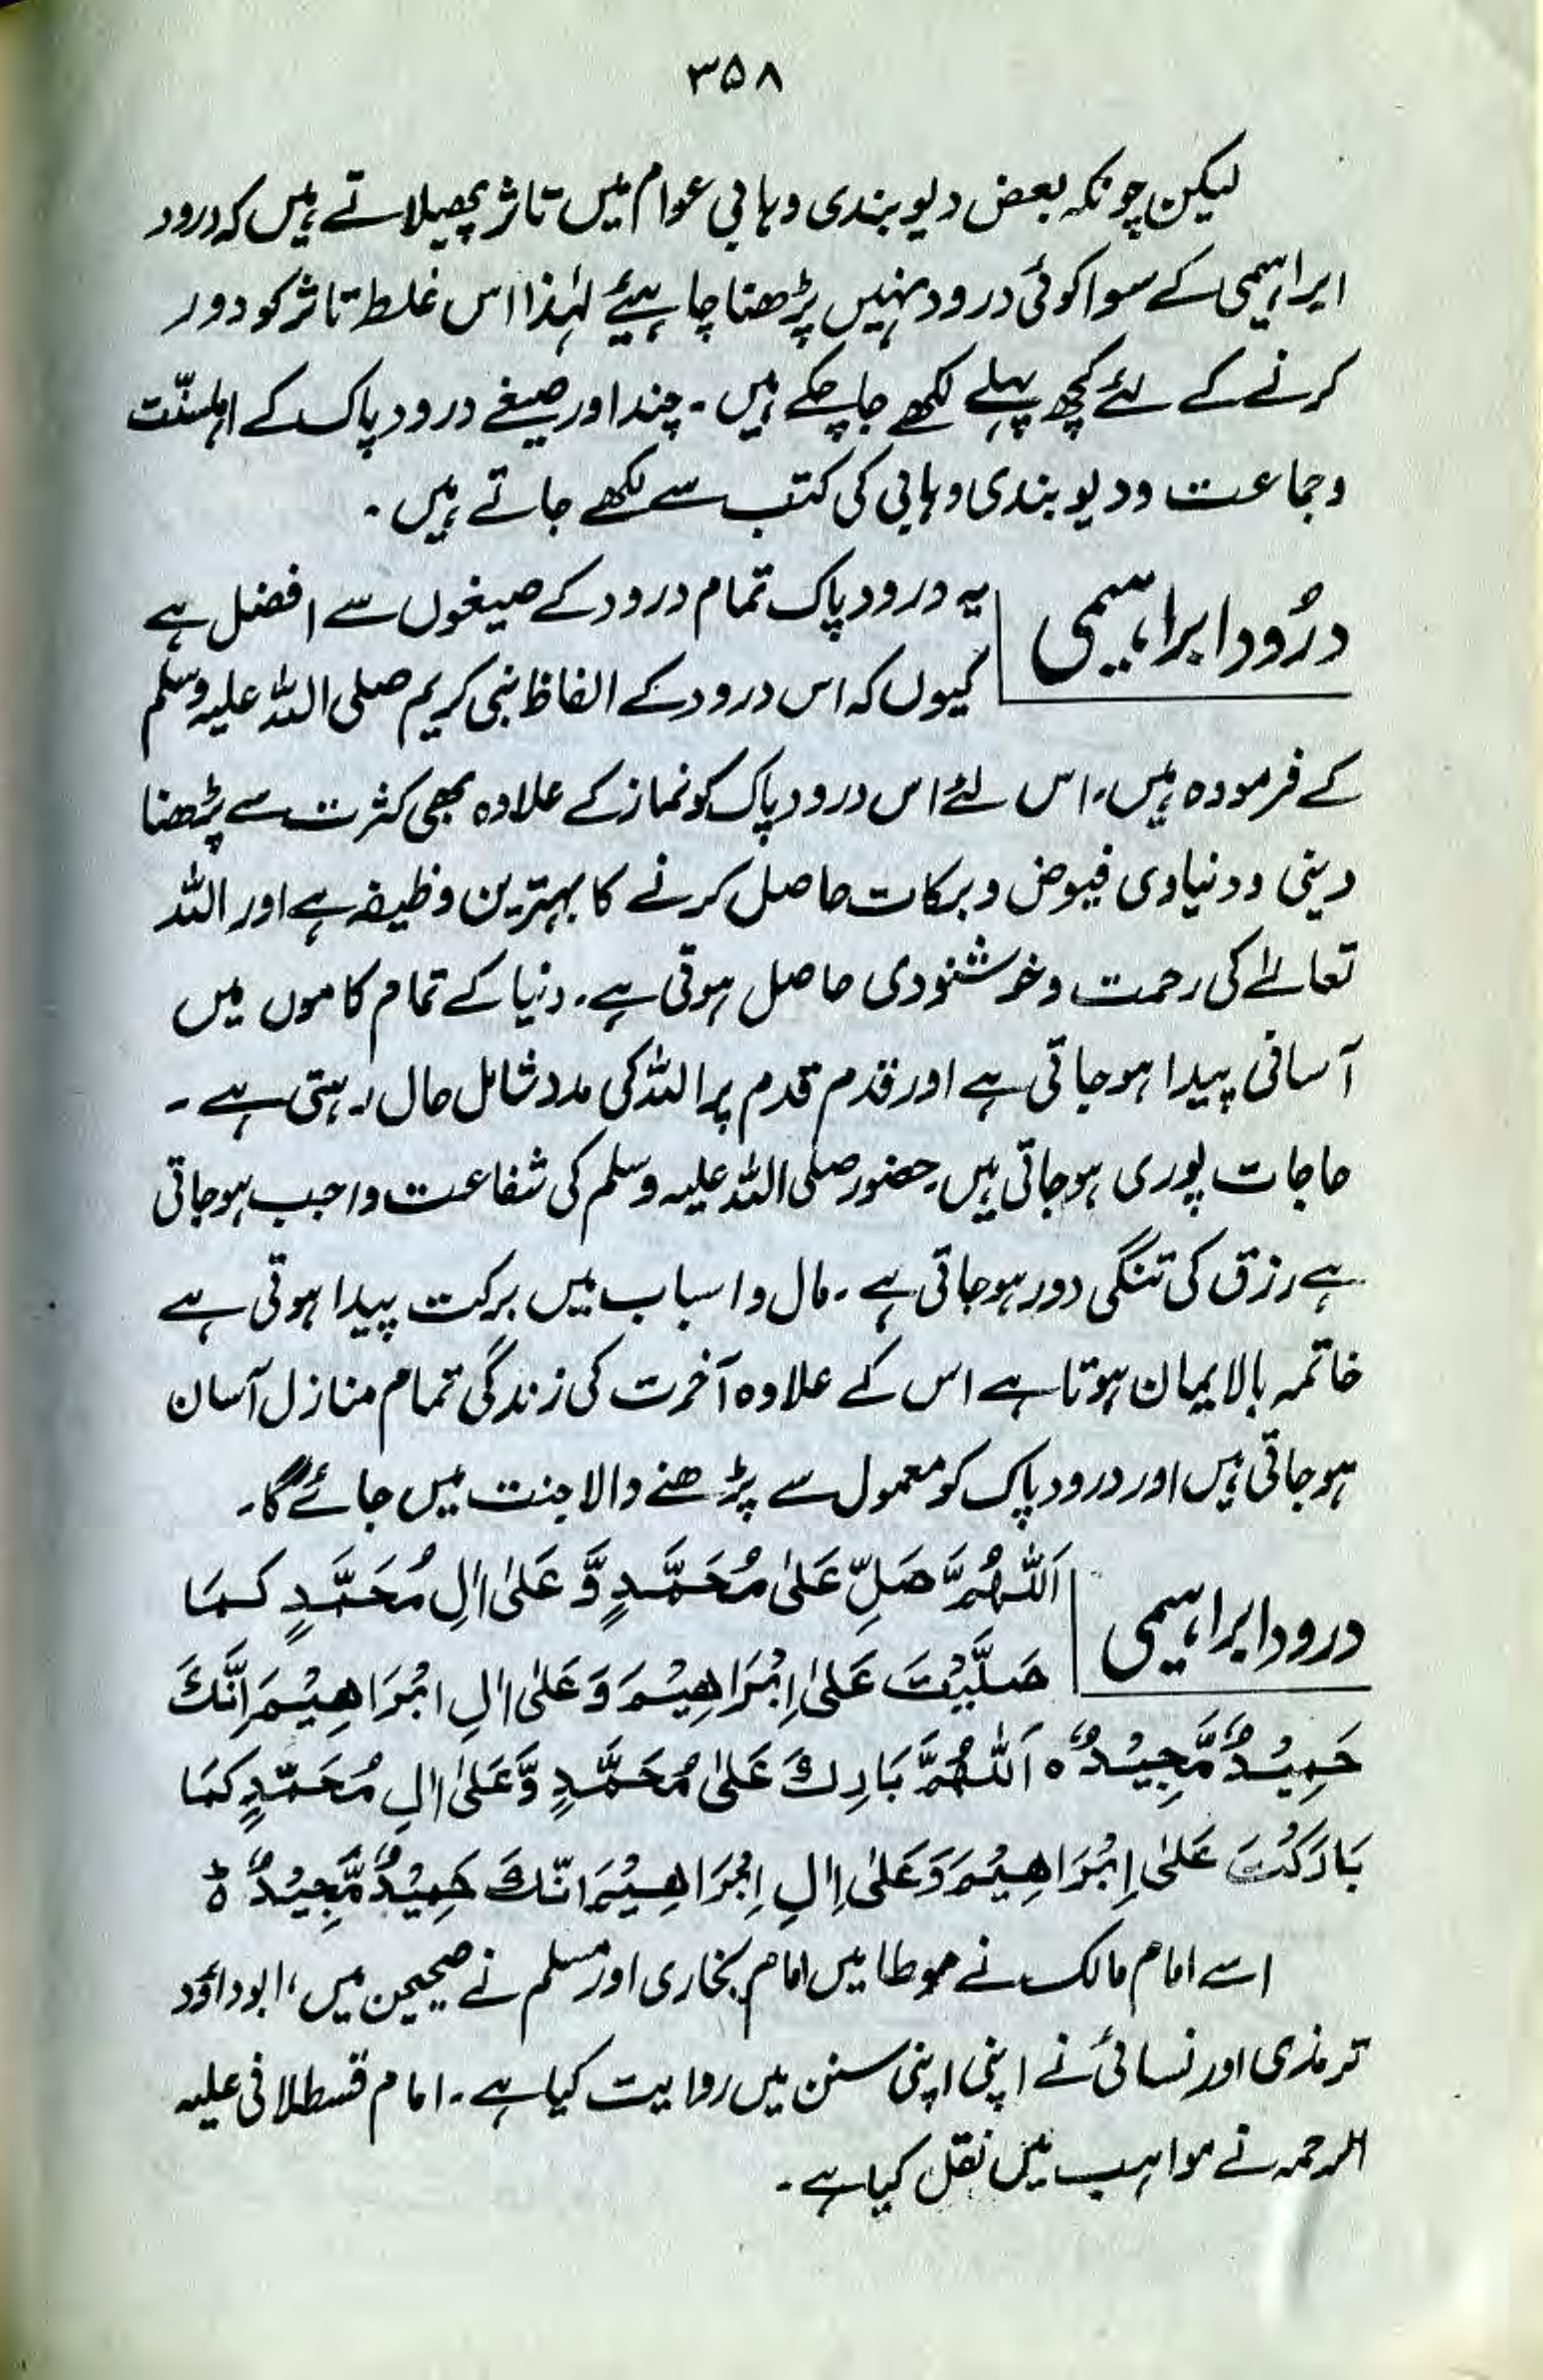 ۳۵۸
لیکن چونکہ بعض دیوبندی وہابی عوام میں تاثر پھیلاتے ہیں کہ درود
ابراہیمی کے سوا کوئی درود نہیں پڑھنا چاہیئے لہٰذا اس غلط تاثر کو دور
کرنے کے لئے کچھ پہلے لکھے جا چکے ہیں۔ چند اور صیغے درود پاک کے اہلسنّت
وجماعت و دیوبندی وہابی کی کتب سے لکھے جاتے ہیں۔
درُود ابراہیمی
یہ درود پاک تمام درود کے صیغوں سے افضل ہے
کیوں کہ اس درود کے الفاظ نبی کریم صلی اللہ علیہ وسلم
کے فرمودہ ہیں، اس لئے اس درود پاک کو نماز کے علاوہ بھی کثرت سے پڑھنا
دینی و دنیاوی فیوض و برکات حاصل کرنے کا بہترین وظیفہ ہے اور اللہ
تعالےٰ کی رحمت و خوشنودی حاصل ہوتی ہے۔ دنیا کے تمام کاموں میں
آسانی پیدا ہو جاتی ہے اور قدم قدم پر اللہ کی مدد شامل حال رہتی ہے۔
حاجات پوری ہو جاتی ہیں۔ حضور صلی اللہ علیہ وسلم کی شفاعت واجب ہو جاتی
ہے رزق کی تنگی دور ہو جاتی ہے۔ مال و اسباب میں برکت پیدا ہوتی ہے
خاتمہ بالایمان ہوتا ہے اس کے علاوہ آخرت کی زندگی تمام منازل آسان
ہو جاتی ہیں اور درود پاک کو معمول سے پڑھنے والا جنت میں جائے گا۔
درود ابراہیمی
اَللّٰهُمَّ صَلِّ عَلىٰ مُحَمَّدٍ وَّ عَلىٰ اٰلِ مُحَمَّدٍ كَمَا
صَلَّيْتَ عَلىٰ اِبْرَاهِيْمَ وَ عَلىٰ اٰلِ ابْرَاهِيْمَ اِنَّكَ
حَمِيْدٌ مَّجِيْدٌ ہ اَللّٰهُمَّ بَارِكْ عَلىٰ مُحَمَّدٍ وَّعَلىٰ اٰلِ مُحَمَّدٍ كَمَا
بَارَكْتَ عَلىٰ اِبْرَاهِيْمَ وَعَلىٰ اٰلِ اِبْرَاهِيْمَ انَّكَ حَمِيْدٌ مَّجِيْدٌ ہ
اسے امام مالک نے موطا میں امام بخاری اور مسلم نے صحیحین میں، ابو داؤد
ترمذی اور نسائی نے اپنی اپنی سنن میں روایت کیا ہے۔ امام قسطلانی علیہ
الرحمہ نے مواہب میں نقل کیا ہے۔